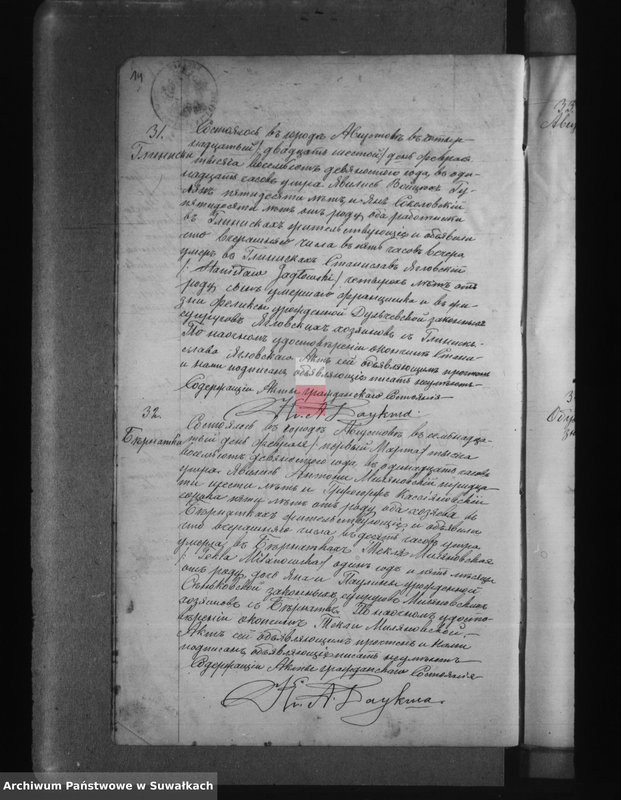 31.
Глиниски
Состоялось въ городѣ Августовѣ въ четыр-
надцатый / двадцать шестой / день февраля
тысяча восемьсотъ девяностого года, въ оди-
надцать часовъ утра. Явились Войцехъ
пятидесяти лѣтъ, и Янъ Соколовскій
пятидесяти лѣтъ отъ роду, оба работники
въ Глинискахъ жительствующіе и объявили
что вчерашняго числа въ пять часовъ вечера
умеръ въ Глинискахъ Станиславъ Ягловскій
/ Stanisław Jagłowski / четырехъ лѣтъ отъ
роду, сынъ умершаго Францишка и въ жи-
зни Феликсы урожденной законныхъ
супруговъ Ягловскихъ хозяевъ съ Глинискъ.
По наочномъ удостовѣреніи о кончинѣ Стани-
слава Ягловскаго Актъ сей объявляющимъ прочтенъ
и нами подписанъ, объявляющіе писать неумѣютъ.
Содержащій Акты гражданскаго Состоянія
32.
Бѣрнатки
Состоялось въ городѣ Августовѣ въ семнадца-
тый день февраля / первый Марта / тысяча
восемьсотъ девяностого года, въ одинадцать часовъ
утра. Явились Антони Миляновскій тридца-
ти шести лѣтъ и Григоръ
сорока пяти лѣтъ отъ роду, оба хозяева въ
Бѣрнаткахъ жительствующіе, и объявили
что вчерашняго числа въ десять часовъ утра
умерла, въ Бѣрнаткахъ Текля Миляновская
/ Tekla Milanowska / одинъ годъ и пять мѣсяцевъ
отъ роду, дочь Яна и Паулины урожденной
законныхъ супруговъ Миляновскихъ
хозяевъ съ Бѣрнатокъ. По наочномъ удосто-
вѣреніи о кончинѣ Текли Миляновской,
Актъ сей объявляющимъ прочтенъ и нами
подписанъ, объявляющіе писать неумѣютъ
Содержащій Акты гражданскаго Состоянія
33.
Archiwum Państwowe w Suwałkach